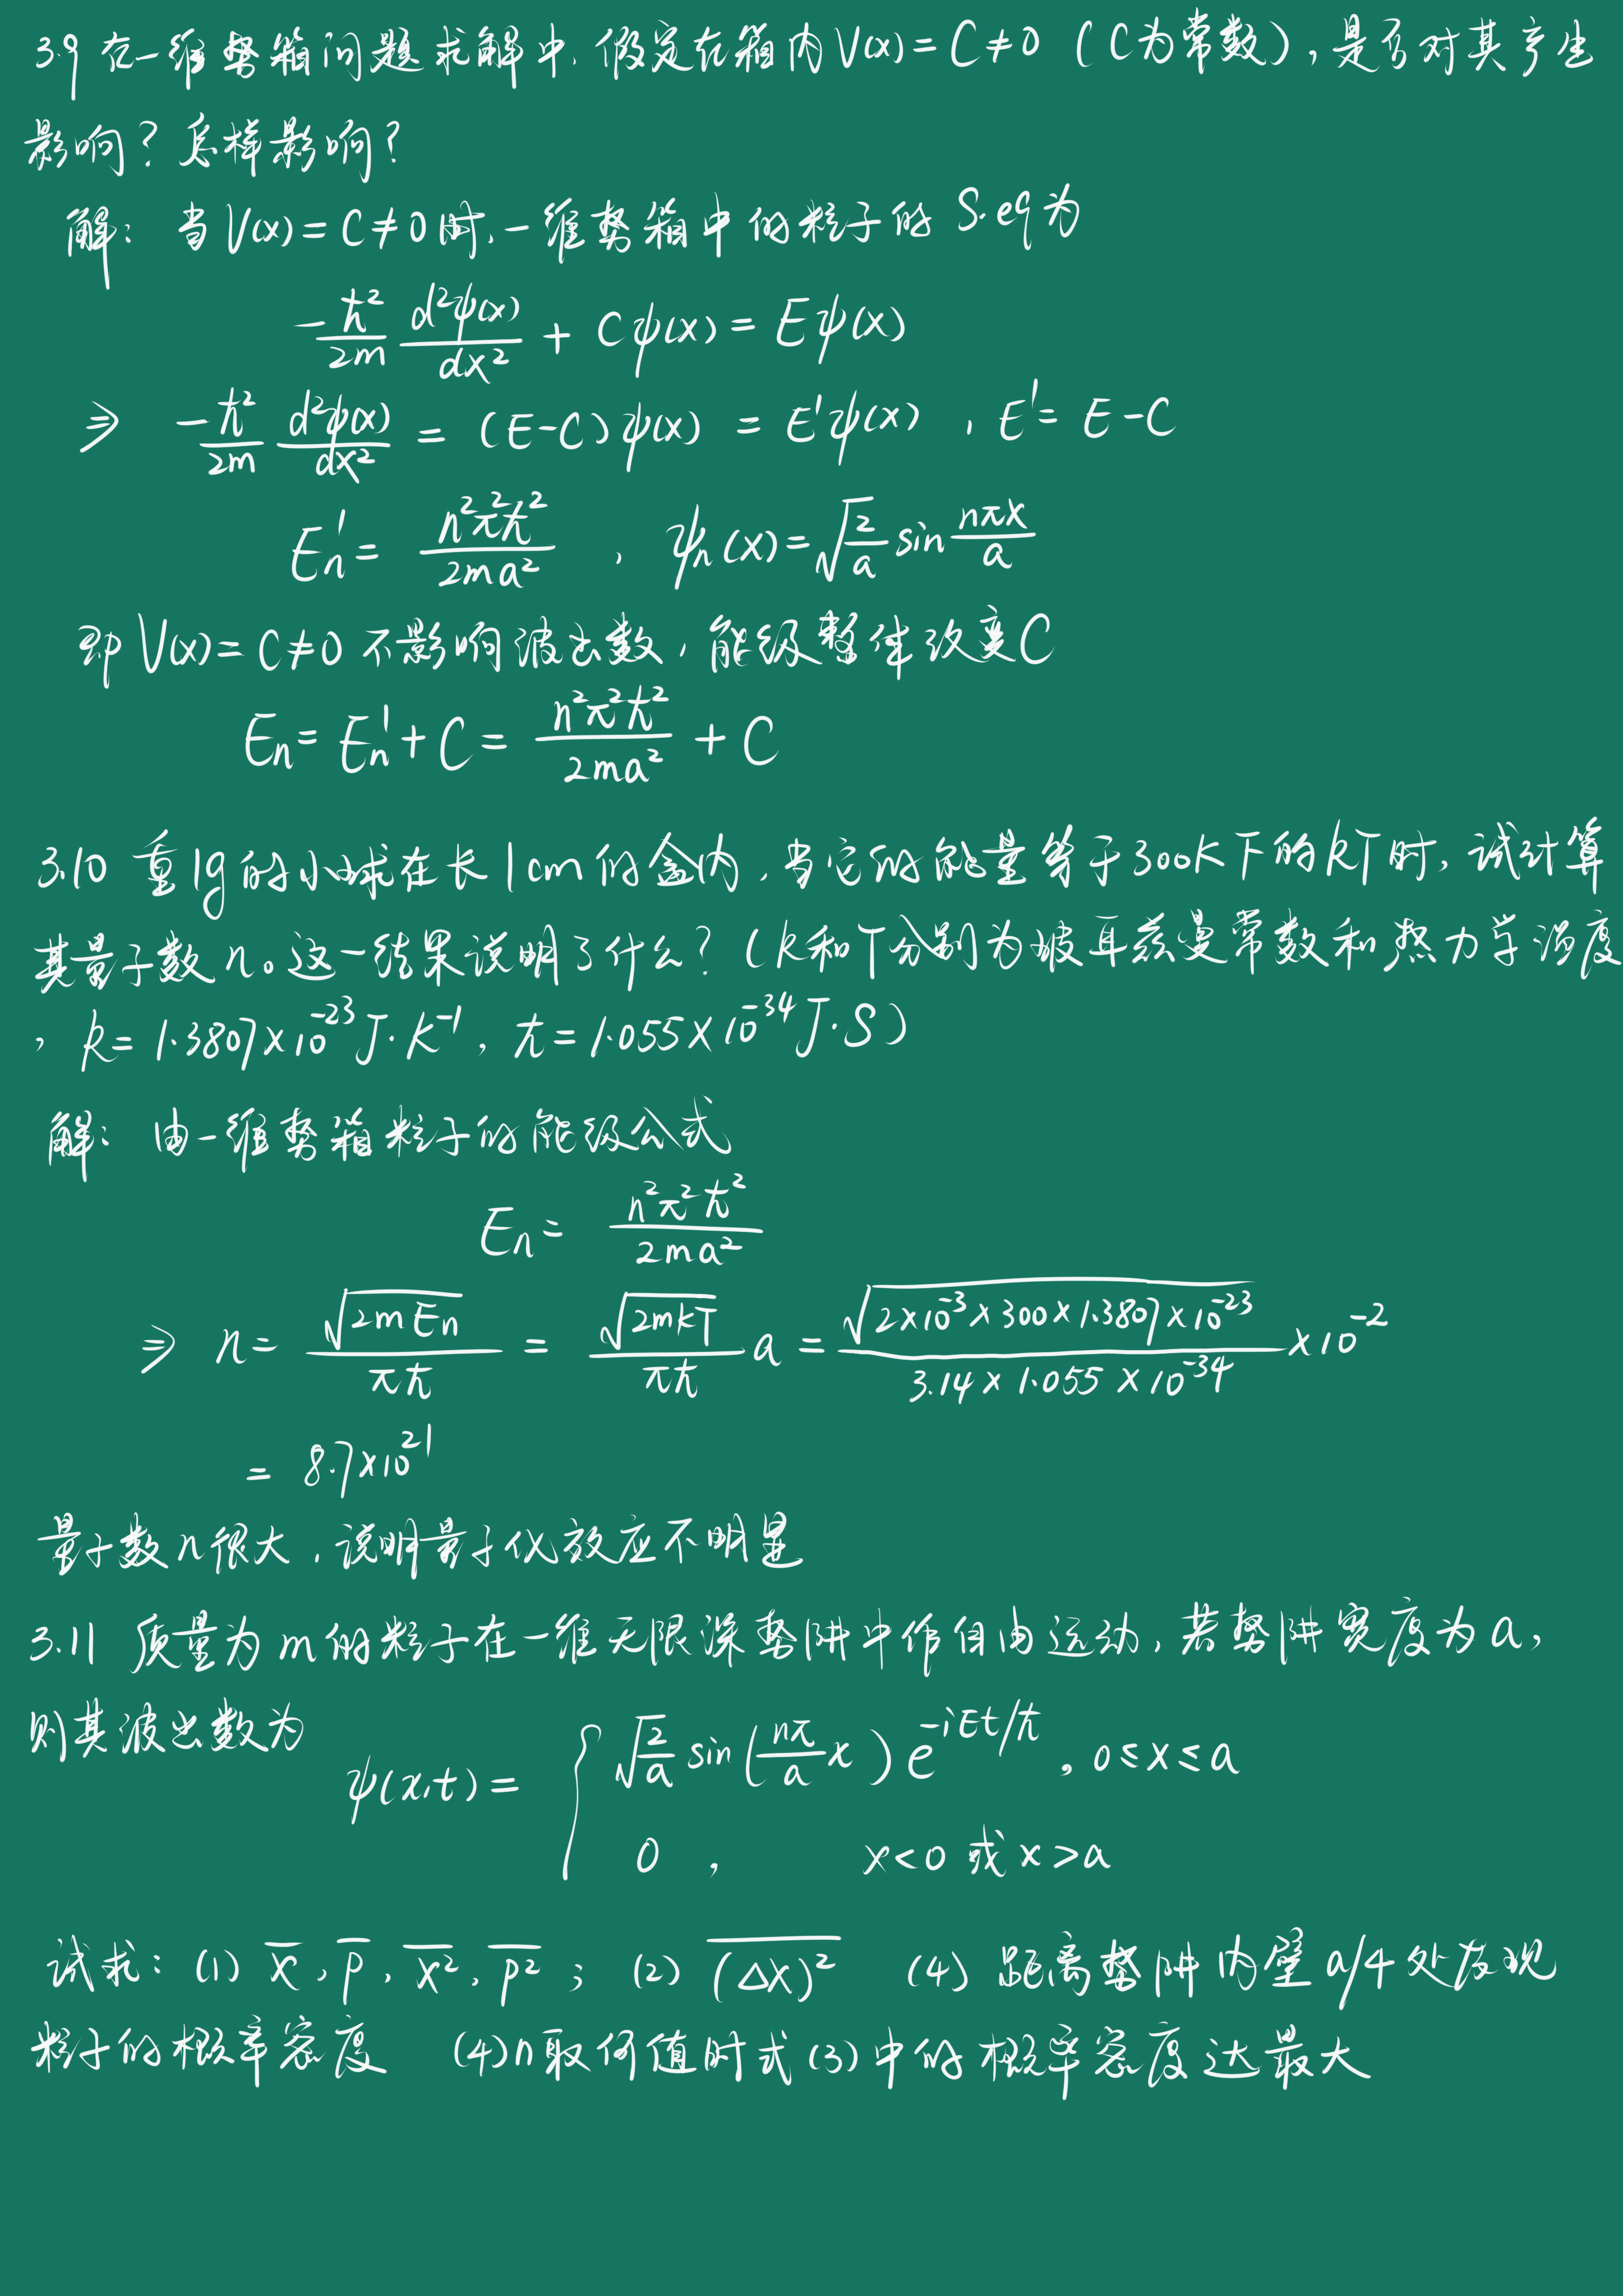 3.9 在一维势箱问题求解中,假定在箱内V(x)=C≠0 (C为常数),是否对其产生
影响?怎样影响?
解: 当V(x)=C≠0时,一维势箱中的粒子的 S.eq为
-ħ²/2m d²ψ(x)/dx² + Cψ(x) = Eψ(x)
⇒ -ħ²/2m d²ψ(x)/dx² = (E-C)ψ(x) = E'ψ(x) , E' = E-C
Eₙ' = n²π²ħ²/2ma² , ψₙ(x) = √(2/a) sin nπx/a
即 V(x)=C≠0 不影响波函数,能级整体改变C
Eₙ = Eₙ' + C = n²π²ħ²/2ma² + C
3.10 重1g的小球在长1cm的盒内,当它的能量等于300K下的kT时,试计算
其量子数n。这一结果说明了什么?(k和T分别为玻耳兹曼常数和热力学温度
, k=1.3807×10⁻²³J·K⁻¹, ħ=1.055×10⁻³⁴J·S)
解: 由一维势箱粒子的能级公式
Eₙ = n²π²ħ²/2ma²
⇒ n = √(2mEₙ)/πħ = √(2mkT)/πħ a = √(2×10⁻³×300×1.3807×10⁻²³)/(3.14×1.055×10⁻³⁴) ×10⁻²
= 8.7×10²¹
量子数n很大,说明量子化效应不明显
3.11 质量为m的粒子在一维无限深势阱中作自由运动,若势阱宽度为a,
则其波函数为
ψ(x,t) = { √(2/a) sin(nπ/a x) e^(-iEt/ħ) , 0≤x≤a
0 , x<0 或 x>a
试求: (1) x̄, p̄, x̄², p̄² ; (2) (Δx)²‾ (4) 距离势阱内壁a/4处发现
粒子的概率密度 (4)n取何值时式(3)中的概率密度达最大